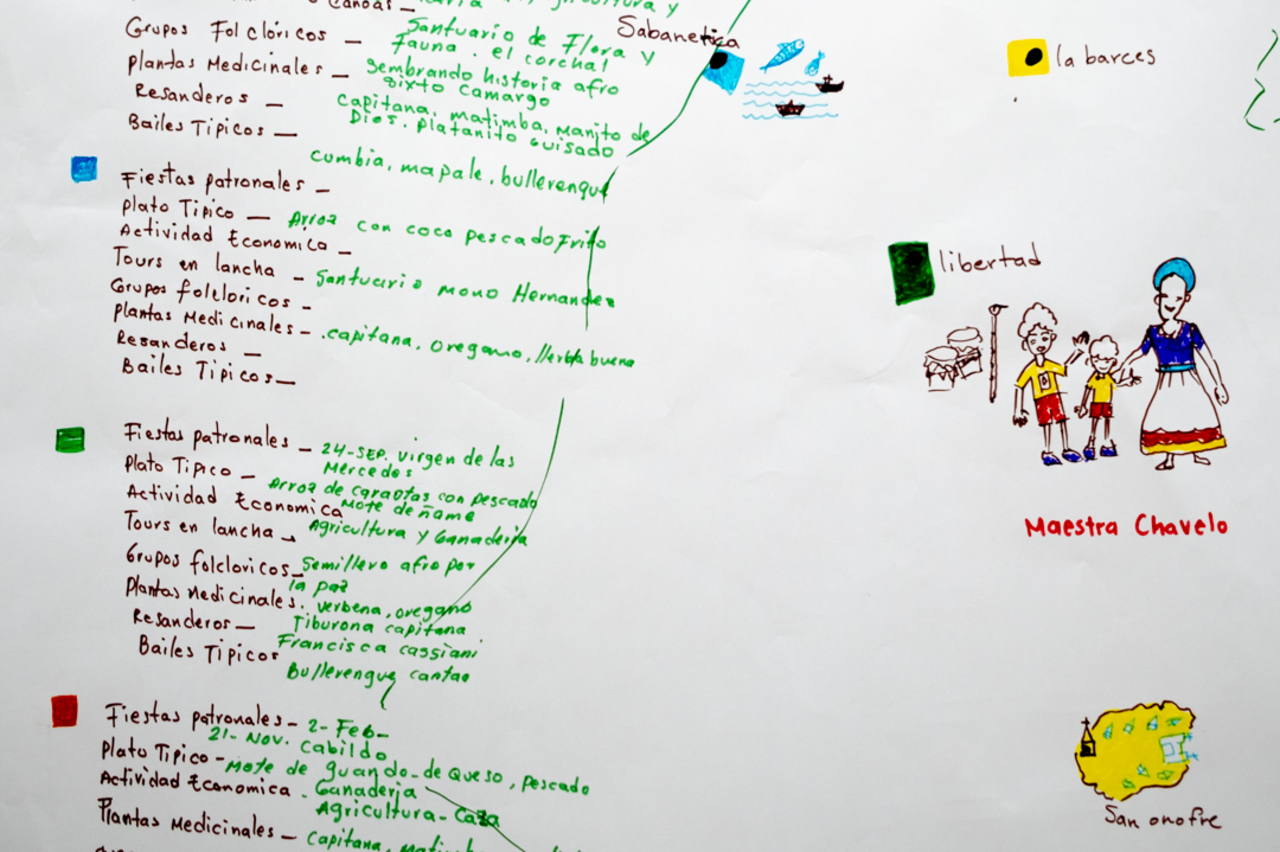 Grupos Folclóricos - Santuario de Flora y
Fauna. el corchal
Plantas Medicinales - Sembrando historia afro
sixto camargo
Resanderos - Capitana, matimba, Manito de
Dios. Platanito Guisado
Bailes Tipicos -
cumbia, mapale, bullerengue
Fiestas patronales -
Plato Tipico - Arroz con coco pescado Frito
Actividad Economica -
Tours en lancha - Santuario mono Hernandez
Grupos folcloricos -
Plantas Medicinales - .capitana, oregano, llerba buena
Resanderos -
Bailes Tipicos -
Fiestas patronales - 24-SEP. virgen de las
Mercedes
Plato Tipico - Arroz de caraotas con pescado
Mote de ñame
Actividad Economica
Agricultura y Ganaderia
Tours en lancha -
Grupos folcloricos - Semillero afro por
la paz
Plantas Medicinales. verbena, oregano
Tiburona capitana
Resanderos - Francisca cassiani
Bailes Tipicos
Bullerengue cantao
Fiestas patronales - 2- Feb-
21- Nov. Cabildo
Plato Tipico - Mote de guando - de queso, pescado
Actividad Economica. Ganaderia
Agricultura - Caza
Plantas Medicinales - Capitana,
Sabanetica
la barces
libertad
Maestra Chavelo
San onofre